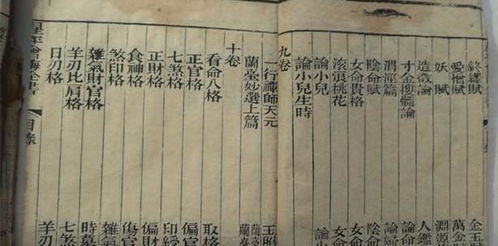 絡繹賦 金玉
愛憎賦 萬金
妖賦 淵源
造微論 人鑑
寸金搜髓論 論命
論 論命
陰命賦 陰命
女命貴格 女命
滾浪桃花 女命
論小兒 論小
論小兒生時
九卷
一行禪師天元 王照
蘭臺妙選上篇 蘭臺
十卷
看命八格 取格
正官格 偏官
七煞格 印綬
正財格 偏財
食神格 傷官
煞印格 雜氣
雜氣財官格 時墓
羊刃比肩格 七煞
日刃格 羊刃
星平會海全書 目錄